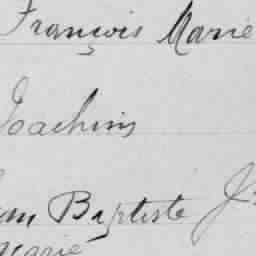 François Marie
Joachim
Baptiste
Marie